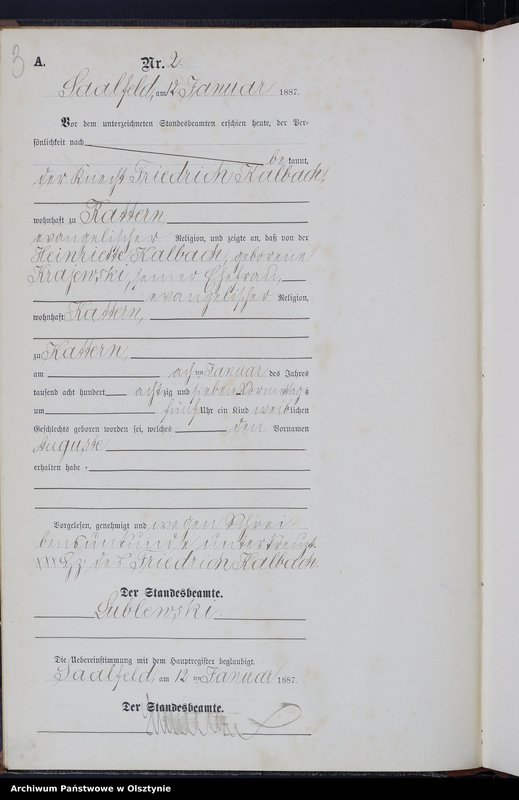 3
A.
Nr. 2
Saalfeld, am 12 Januar 1887.
Vor dem unterzeichneten Standesbeamten erschien heute, der Per-
sönlichkeit nach
be kannt,
der Knecht Friedrich Kalbach,
wohnhaft zu Kattern
evangelischer Religion, und zeigte an, daß von der
Heinriette Kalbach, geborene
Krajewski, seiner Ehefrau,
evangelischer Religion,
wohnhaft Kattern,
zu Kattern,
am achten Januar des Jahres
tausend acht hundert achtzig und sieben Vormittags
um fünf Uhr ein Kind weiblichen
Geschlechts geboren worden sei, welches den Vornamen
Auguste
erhalten habe.
Vorgelesen, genehmigt und wegen Schrei-
bensunkunde unterkreuzt.
††† Hz: des Friedrich Kalbach
Der Standesbeamte.
Lublewski.
Die Uebereinstimmung mit dem Hauptregister beglaubigt.
Saalfeld am 12 ten Januar 1887.
Der Standesbeamte.
Archiwum Państwowe w Olsztynie